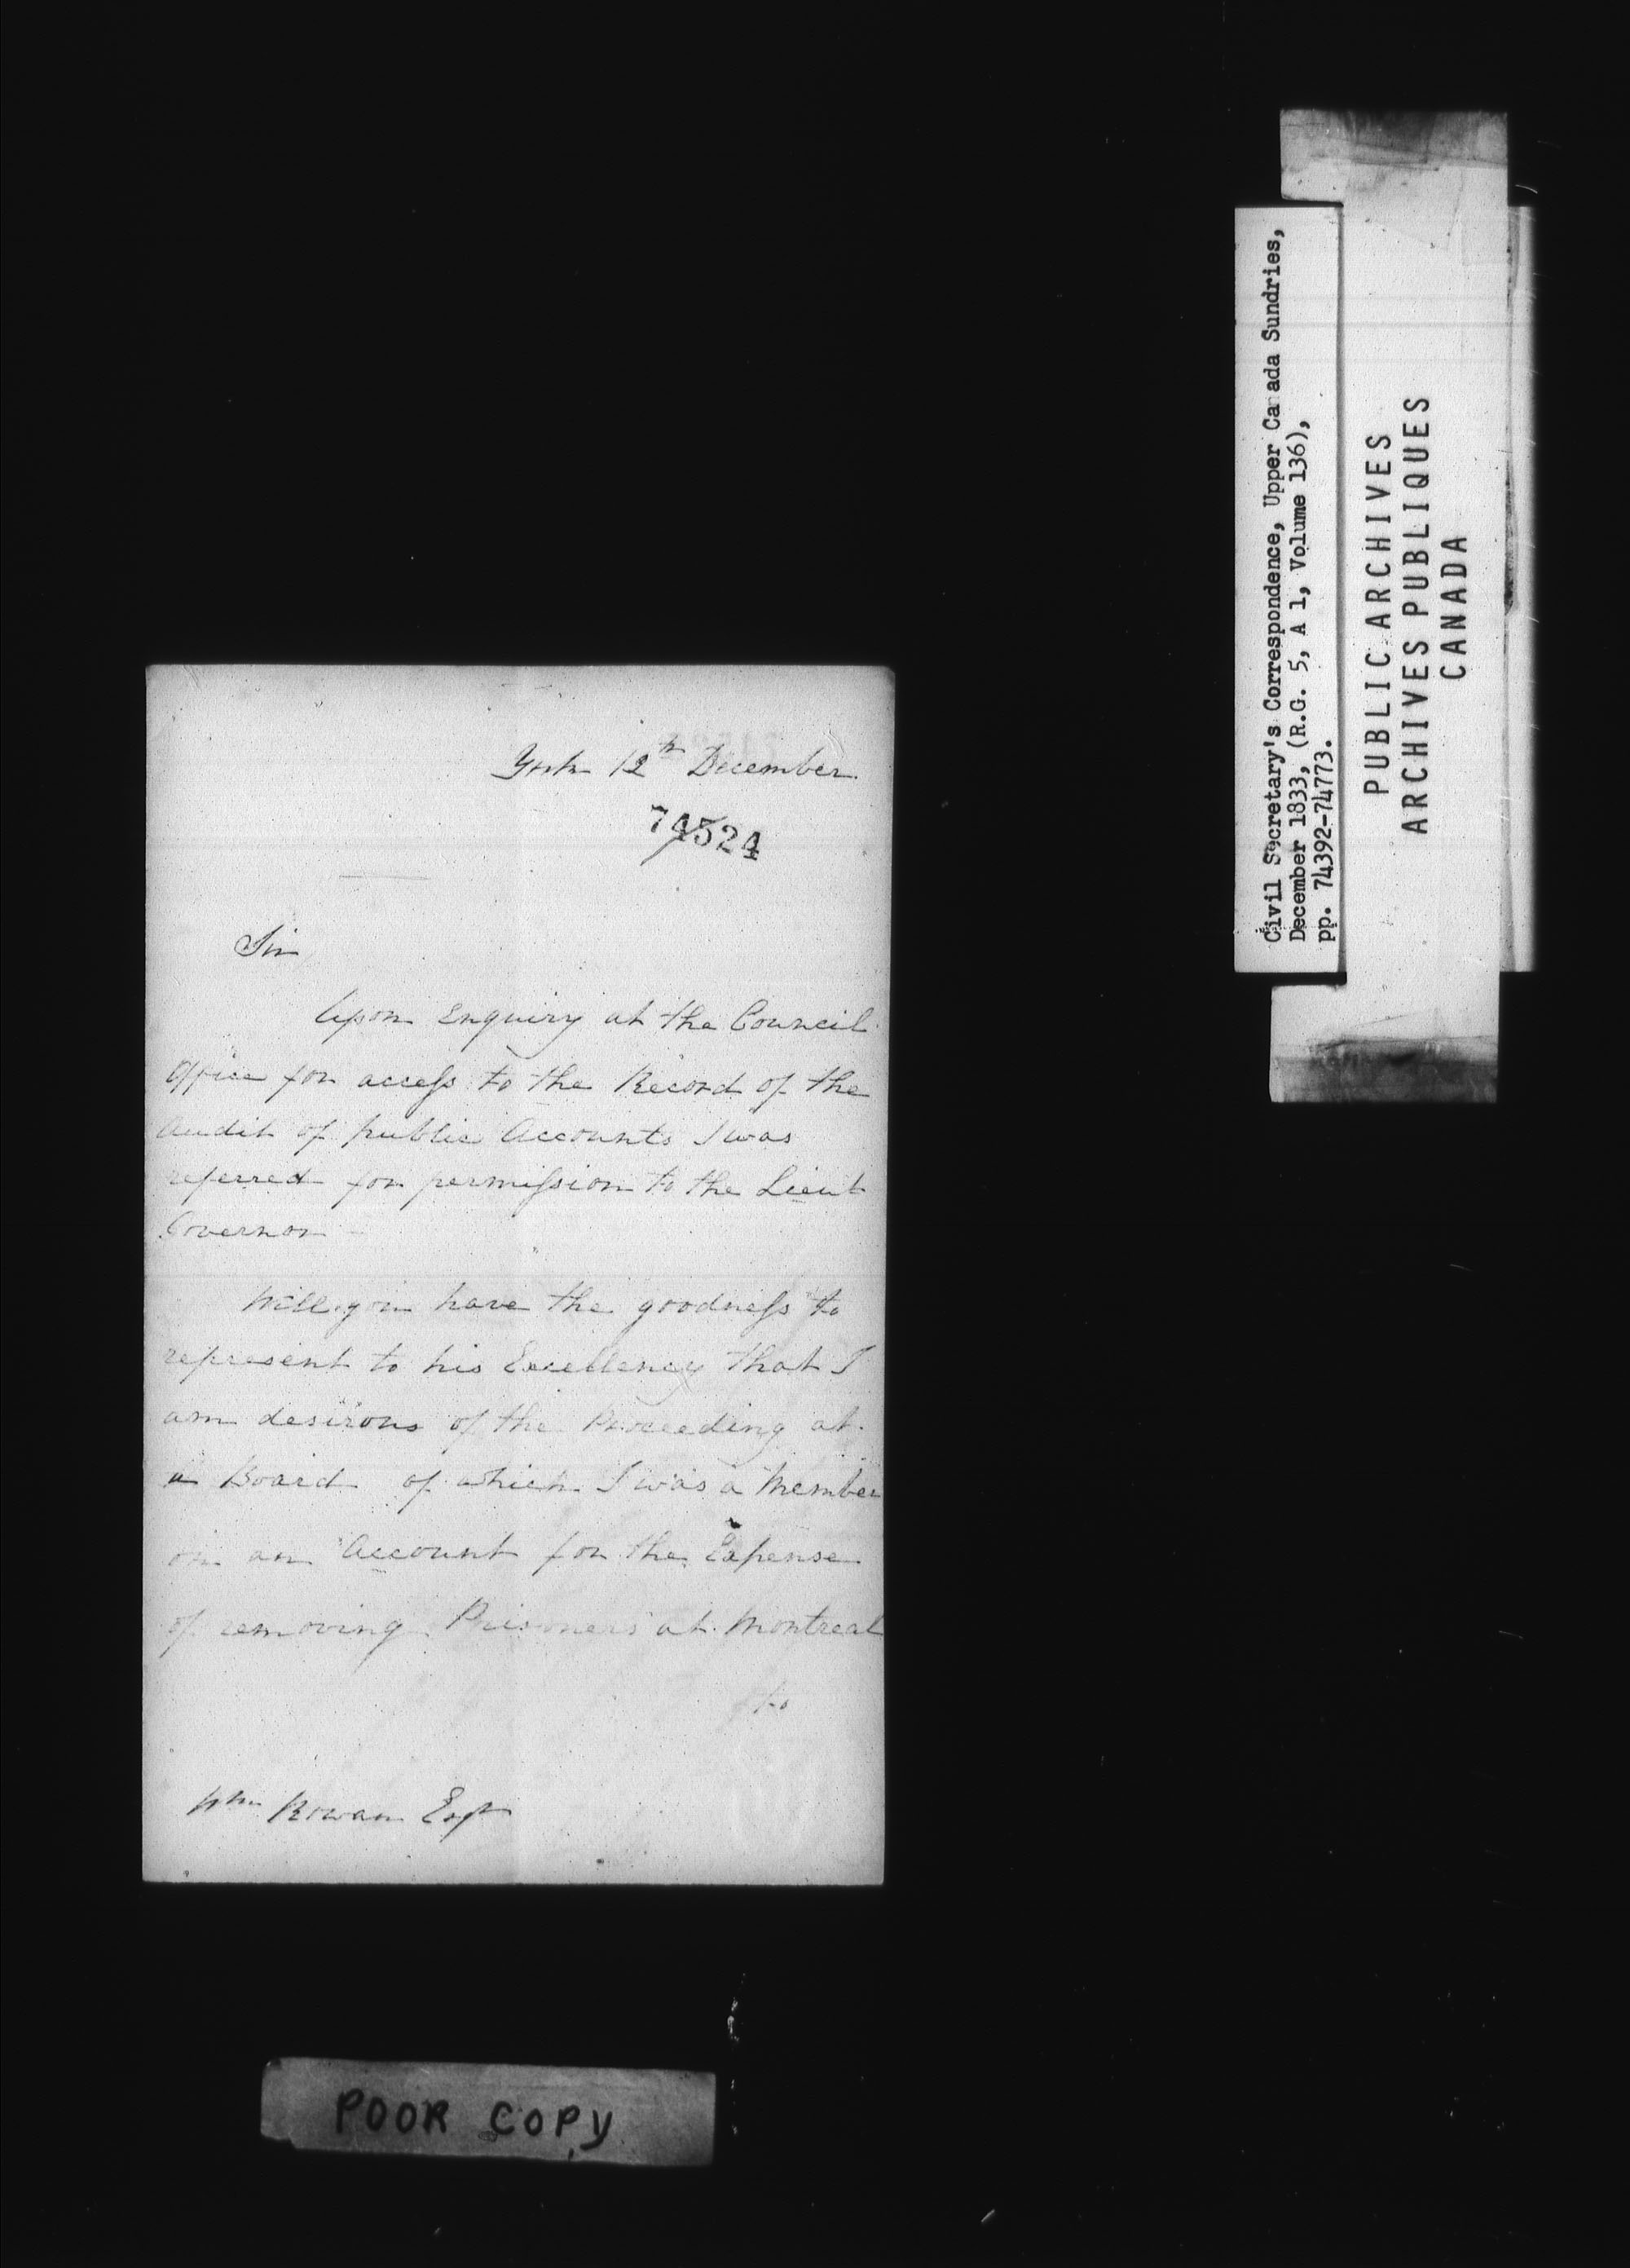 York 12th December
74524
Sir
Upon Enquiry at the Council
Office for access to the Record of the
Audit of public Accounts I was
referred for permission to the Lieut
Governor –
Will you have the goodness to
represent to his Excellency that I
am desirous of the Proceeding at
a Board of which I was a Member
on an Account for the Expense
of removing Prisoners at Montreal
to
Wm Rowan Esqr
POOR COPY
Civil Secretary's Correspondence, Upper Canada Sundries,
December 1833, (R.G. 5, A 1, Volume 136),
pp. 74392-74773.
PUBLIC ARCHIVES
ARCHIVES PUBLIQUES
CANADA